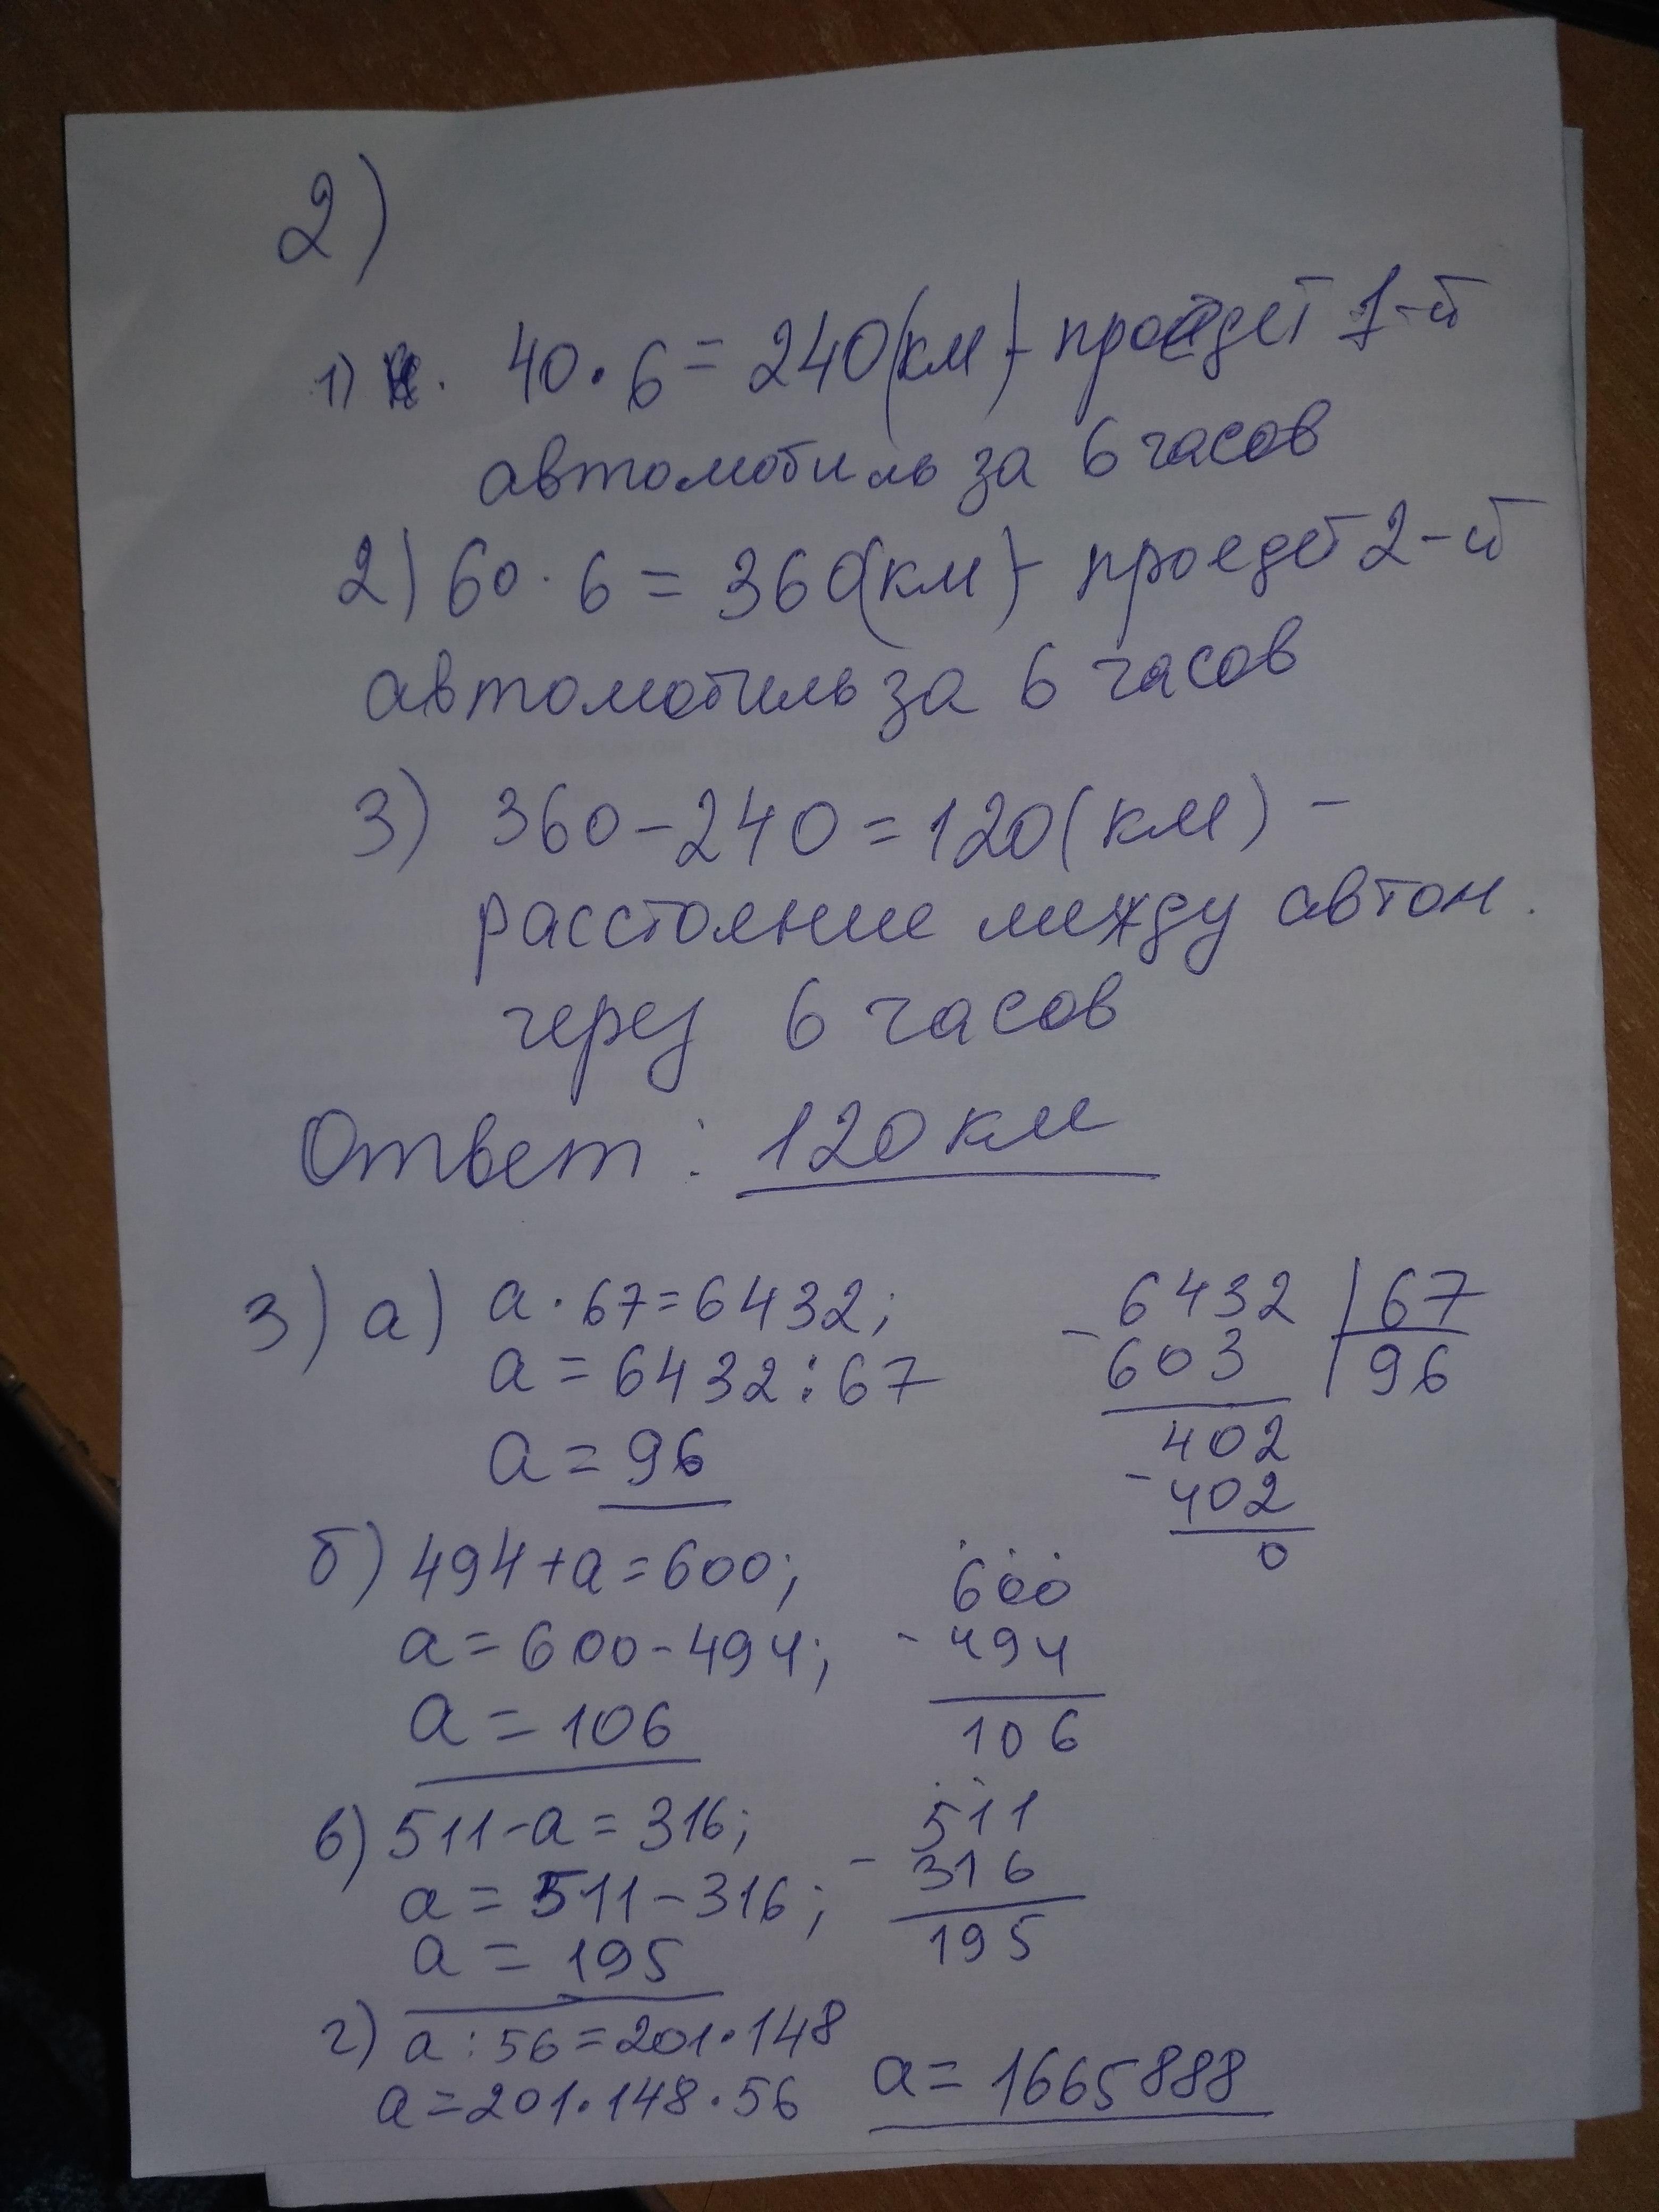 2)
1) 40·6=240(км)- проедет 1-й
автомобиль за 6 часов
2) 60·6=360(км)- проедет 2-й
автомобиль за 6 часов
3) 360-240=120(км)-
расстояние между автом.
через 6 часов
Ответ: 120 км
3) а) a·67=6432;
a=6432:67
a=96
6432 | 67
- 603 | 96
402
- 402
0
б) 494+a=600;
a=600-494;
a=106
600
- 494
106
в) 511-a=316;
a=511-316;
a=195
511
- 316
195
г) a:56=201·148
a=201·148·56
a=1665888